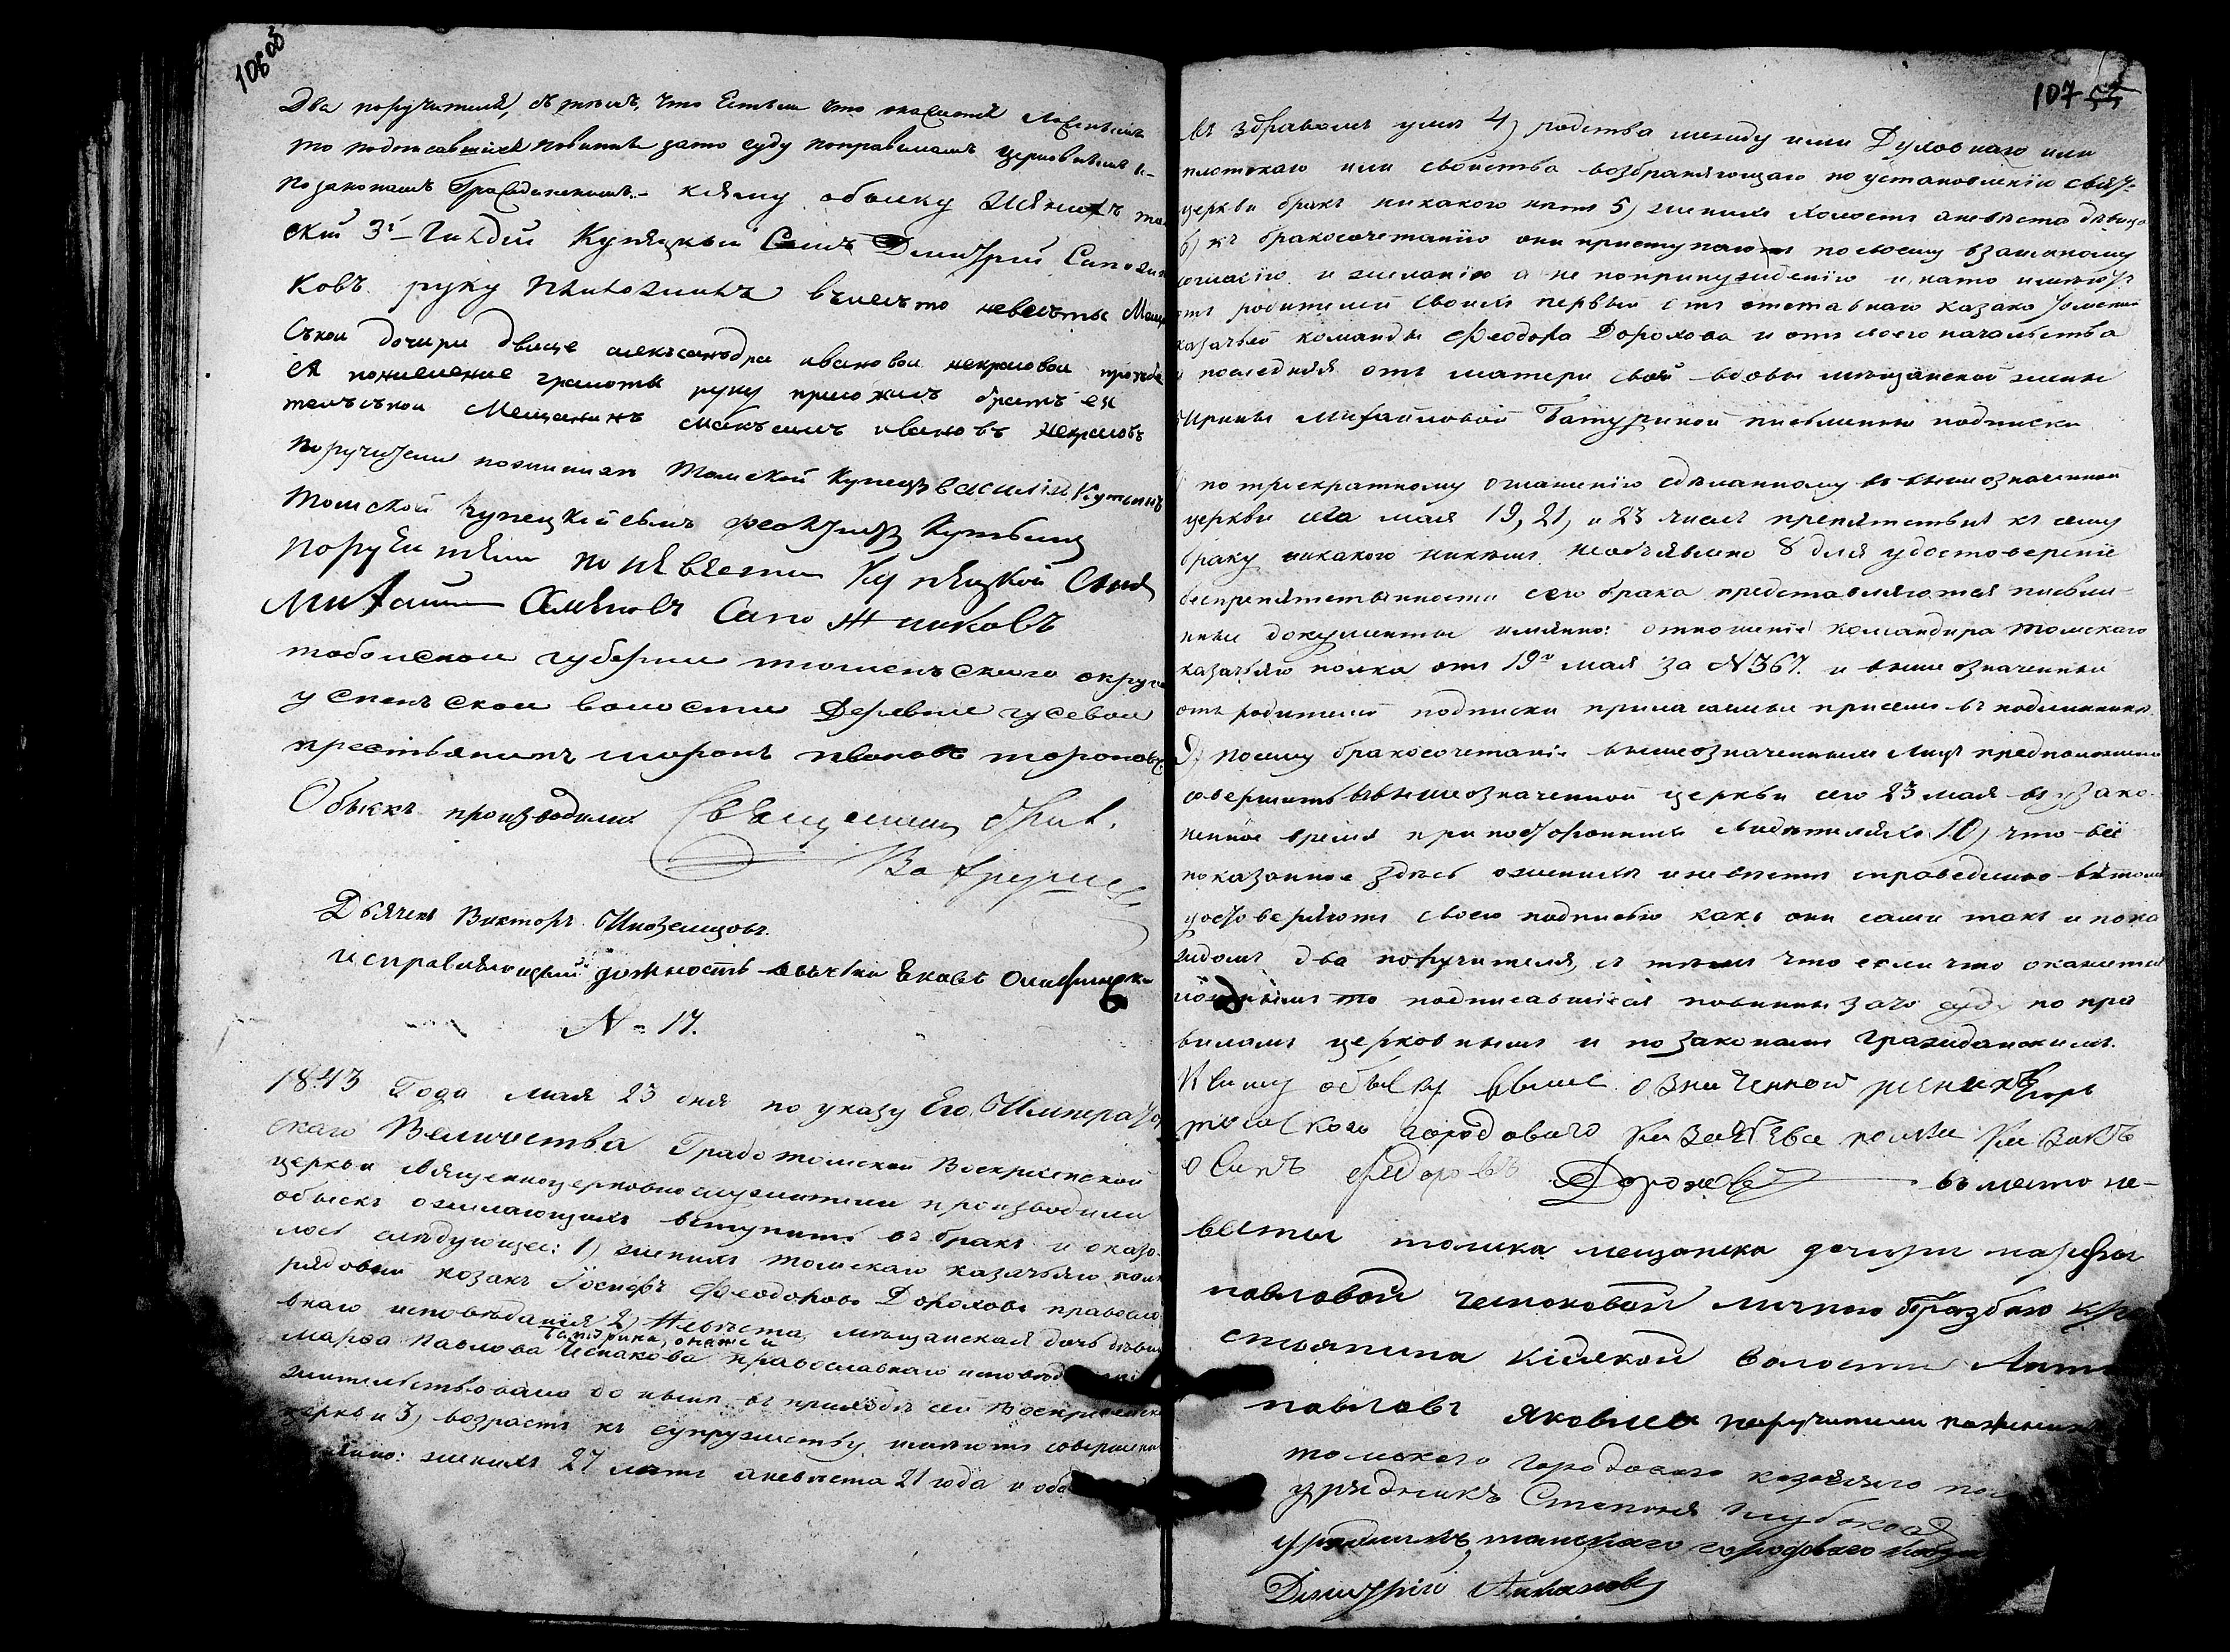 106 об
Два поручителя, съ темъ, что Естьли что окажется Ложнымъ
то подписавшiеся повинны зато суду поправиламъ Церковнымъ и
по законамъ Гражданскимъ. – Ксему обыску Женихъ
ской 3й Гилдiи Купецкый Сынъ Дмитрiй Сапожни
ковъ руку приложилъ вместо невесты Мещ
ской дочери двице александры ивановой некрасовой прозбе
ея понеумение грамоты руку приложилъ братъ ея
Мещанинъ иванъовъ некрасовъ
Поручители пожених Томской Купецъ василiй Кутьинъ
Томской Купецкiй сынъ Кутьинъ
Поручители по невести Купецкой Сынъ
Михаило Семеновъ Сапожниковъ
тобольской губернии тюменьского округа
успенской волости Деревни гусевой
крестьянинъ миронъ ивановъ торопов
Обыскъ производили: Священникъ
Вавр
Дьячекъ Викторъ Иноземцовъ.
исправляющiй должность Яковъ
N = 17.
1843 Года мая 23 дня по указу Его Император
скаго Величества Градотомской Воскресенской
церкви Священноцерковнослужители производили
обыскъ ожелающихъ вступить въ бракъ и оказа
лось следующее: 1) женихъ томскаго казачьяго полка
рядовый козакъ Iосифъ Феодоровъ Дороховъ правосла
внаго исповеданiя 2) Невеста, мещанская дочь девица
Батурина, онаже и
марфа Павлова православнаго исповеданiя
жительствовали до ныне въ приходе сей Воскресенской
церкви 3) возрастъ къ супружеству имеютъ совершенный
имянно: женихъ 27 летъ аневеста 21 года и оба
107
въ здравомъ уме 4) родства между ими Духовнаго или
плотскаго или свойства возбраняющаго по установленiю свят.
церкви бракъ никакого нетъ 5) женихъ холостъ аневеста девица
6) къ бракосочетанiю они приступаютъ посвоему взаимному
согласiю и желанiю а не попринуждению и нато имеютъ
отъ родителей своихъ первый отъ отставнаго казака Томской
казачьей команды Феодора Дорохова и отъ своего начальства
последняя отъ матери своей вдовы мещанской жены
Ирины Михайловой Батуриной письменны подписки
по троекратному оглашенiю сделанному въ вышеозначенной
церкви сега мая 19, 21, и 23 числъ препятствiя къ сему
браку никакого никемъ необъявлено 8 для удостоверенiе
безпрепятственности сего брака представляются письмен
ныи документы имянно: отношенiе командира томскаго
казачьяго полка отъ 19го мая за N 367. и вышеозначенныи
отъ родителей подписки прилагаемыи присемъ въ подлиннике
9) посему бракосочетанiе вышеозначенныхъ Лицъ предположено
совершить ввышеозначенной церкви сего 23 мая въ узако
ненное время при постороннихъ свидетеляхъ 10) что все
показанное здесь ожених и невесте справедливо втомъ
удостоверяютъ своею подписью какъ они сами такъ и пока
ждомъ два поручителя, съ темъ что если что окажется
ложнымъ то подписавшiеся повинны зато суду по пра
виламъ церковнымъ и по законамъ гражданскимъ.
Ксиму обыску выше означенной женихъ
томского городоваго Казачева полка Казакъ
осипъ федоровъ Дороховъ въместо не-
весты томска мещанска дочери марфы
павловой личною прозбою кре
стьянина волости Анто
павловъ яковлев поручители пожених
томского городового козачяго пол
урядникъ Степанъ Глубоков
урядникъ, томского городоваго
Димитрiй